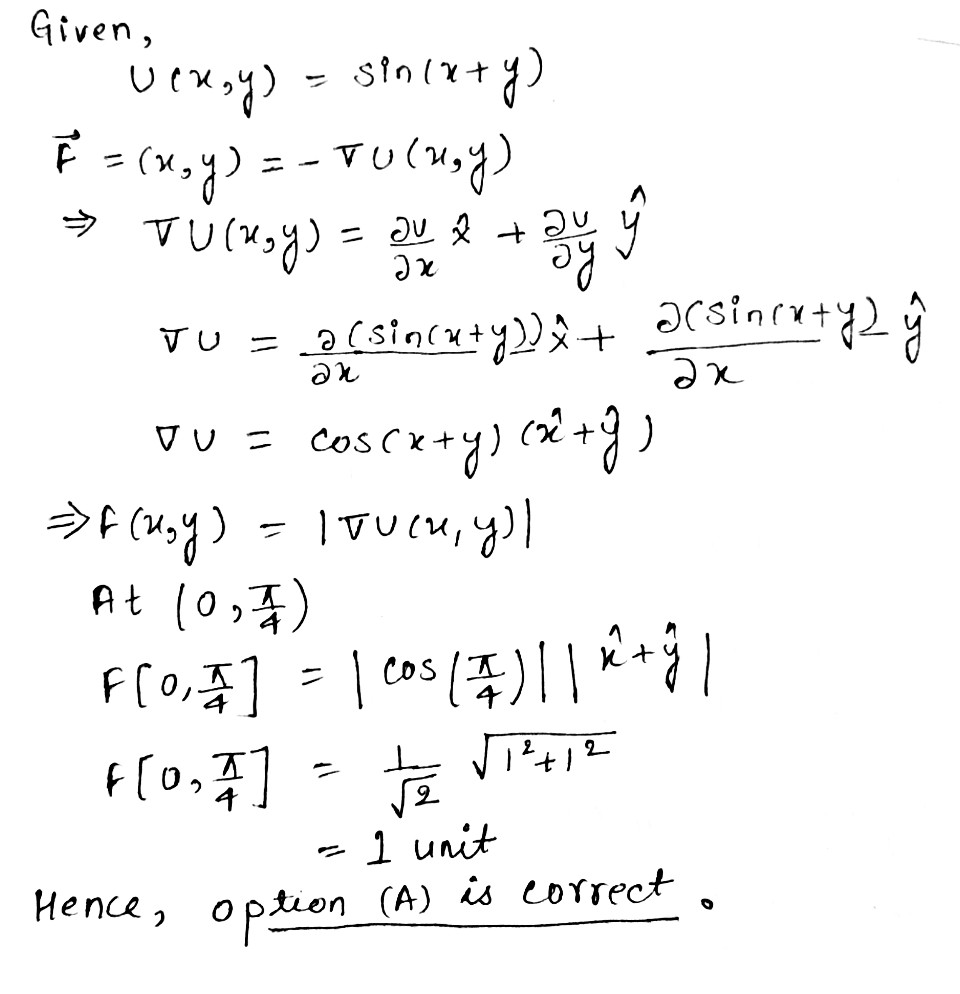 Given,
U(x,y) = sin(x+y)
F⃗ = (x,y) = -∇U(x,y)
⇒ ∇U(x,y) = ∂U/∂x x̂ + ∂U/∂y ŷ
∇U = ∂(sin(x+y))/∂x x̂ + ∂(sin(x+y)/∂x ŷ
∇U = cos(x+y) (x̂+ŷ)
⇒ F(x,y) = |∇U(x,y)|
At (0,π/4)
F[0,π/4] = |cos(π/4)||x̂+ŷ|
F[0,π/4] = 1/√2 √1²+1²
= 1 unit
Hence, option (A) is correct.